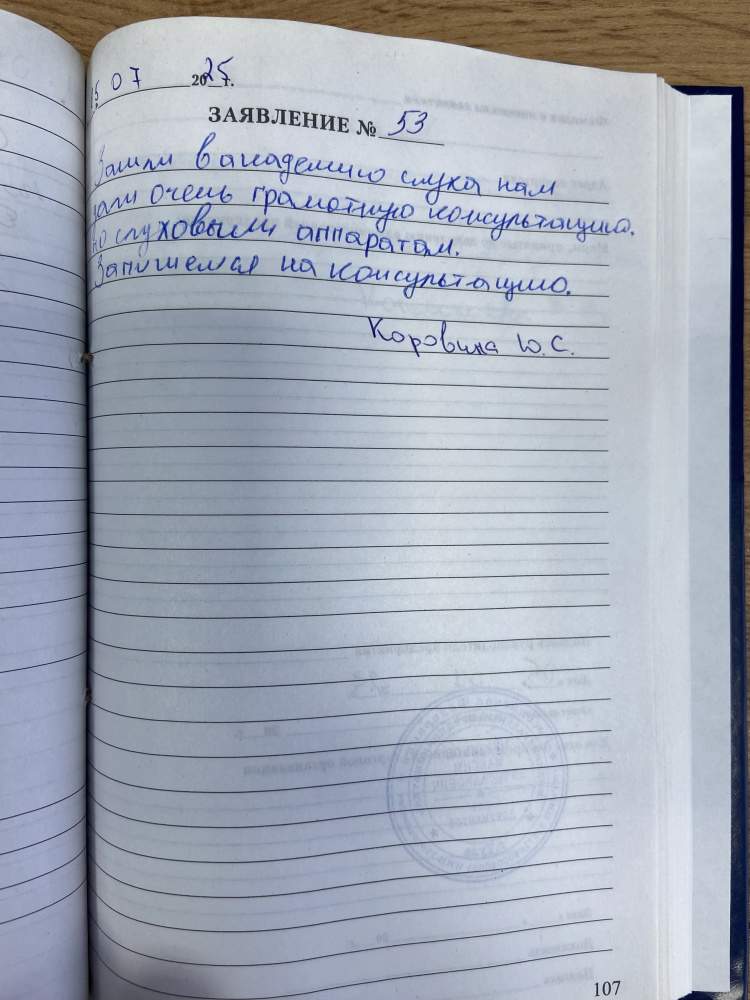 07 2025 г.
ЗАЯВЛЕНИЕ № 53
Зашли в академию слуха нам
дали очень грамотную консультацию.
по слуховым аппаратам.
Запишемся на консультацию.
Коровина Ю.С.
107